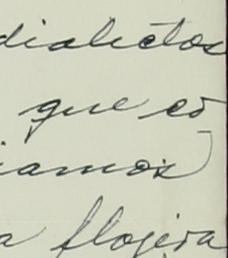 dialectos
que es
iamos
a flojera